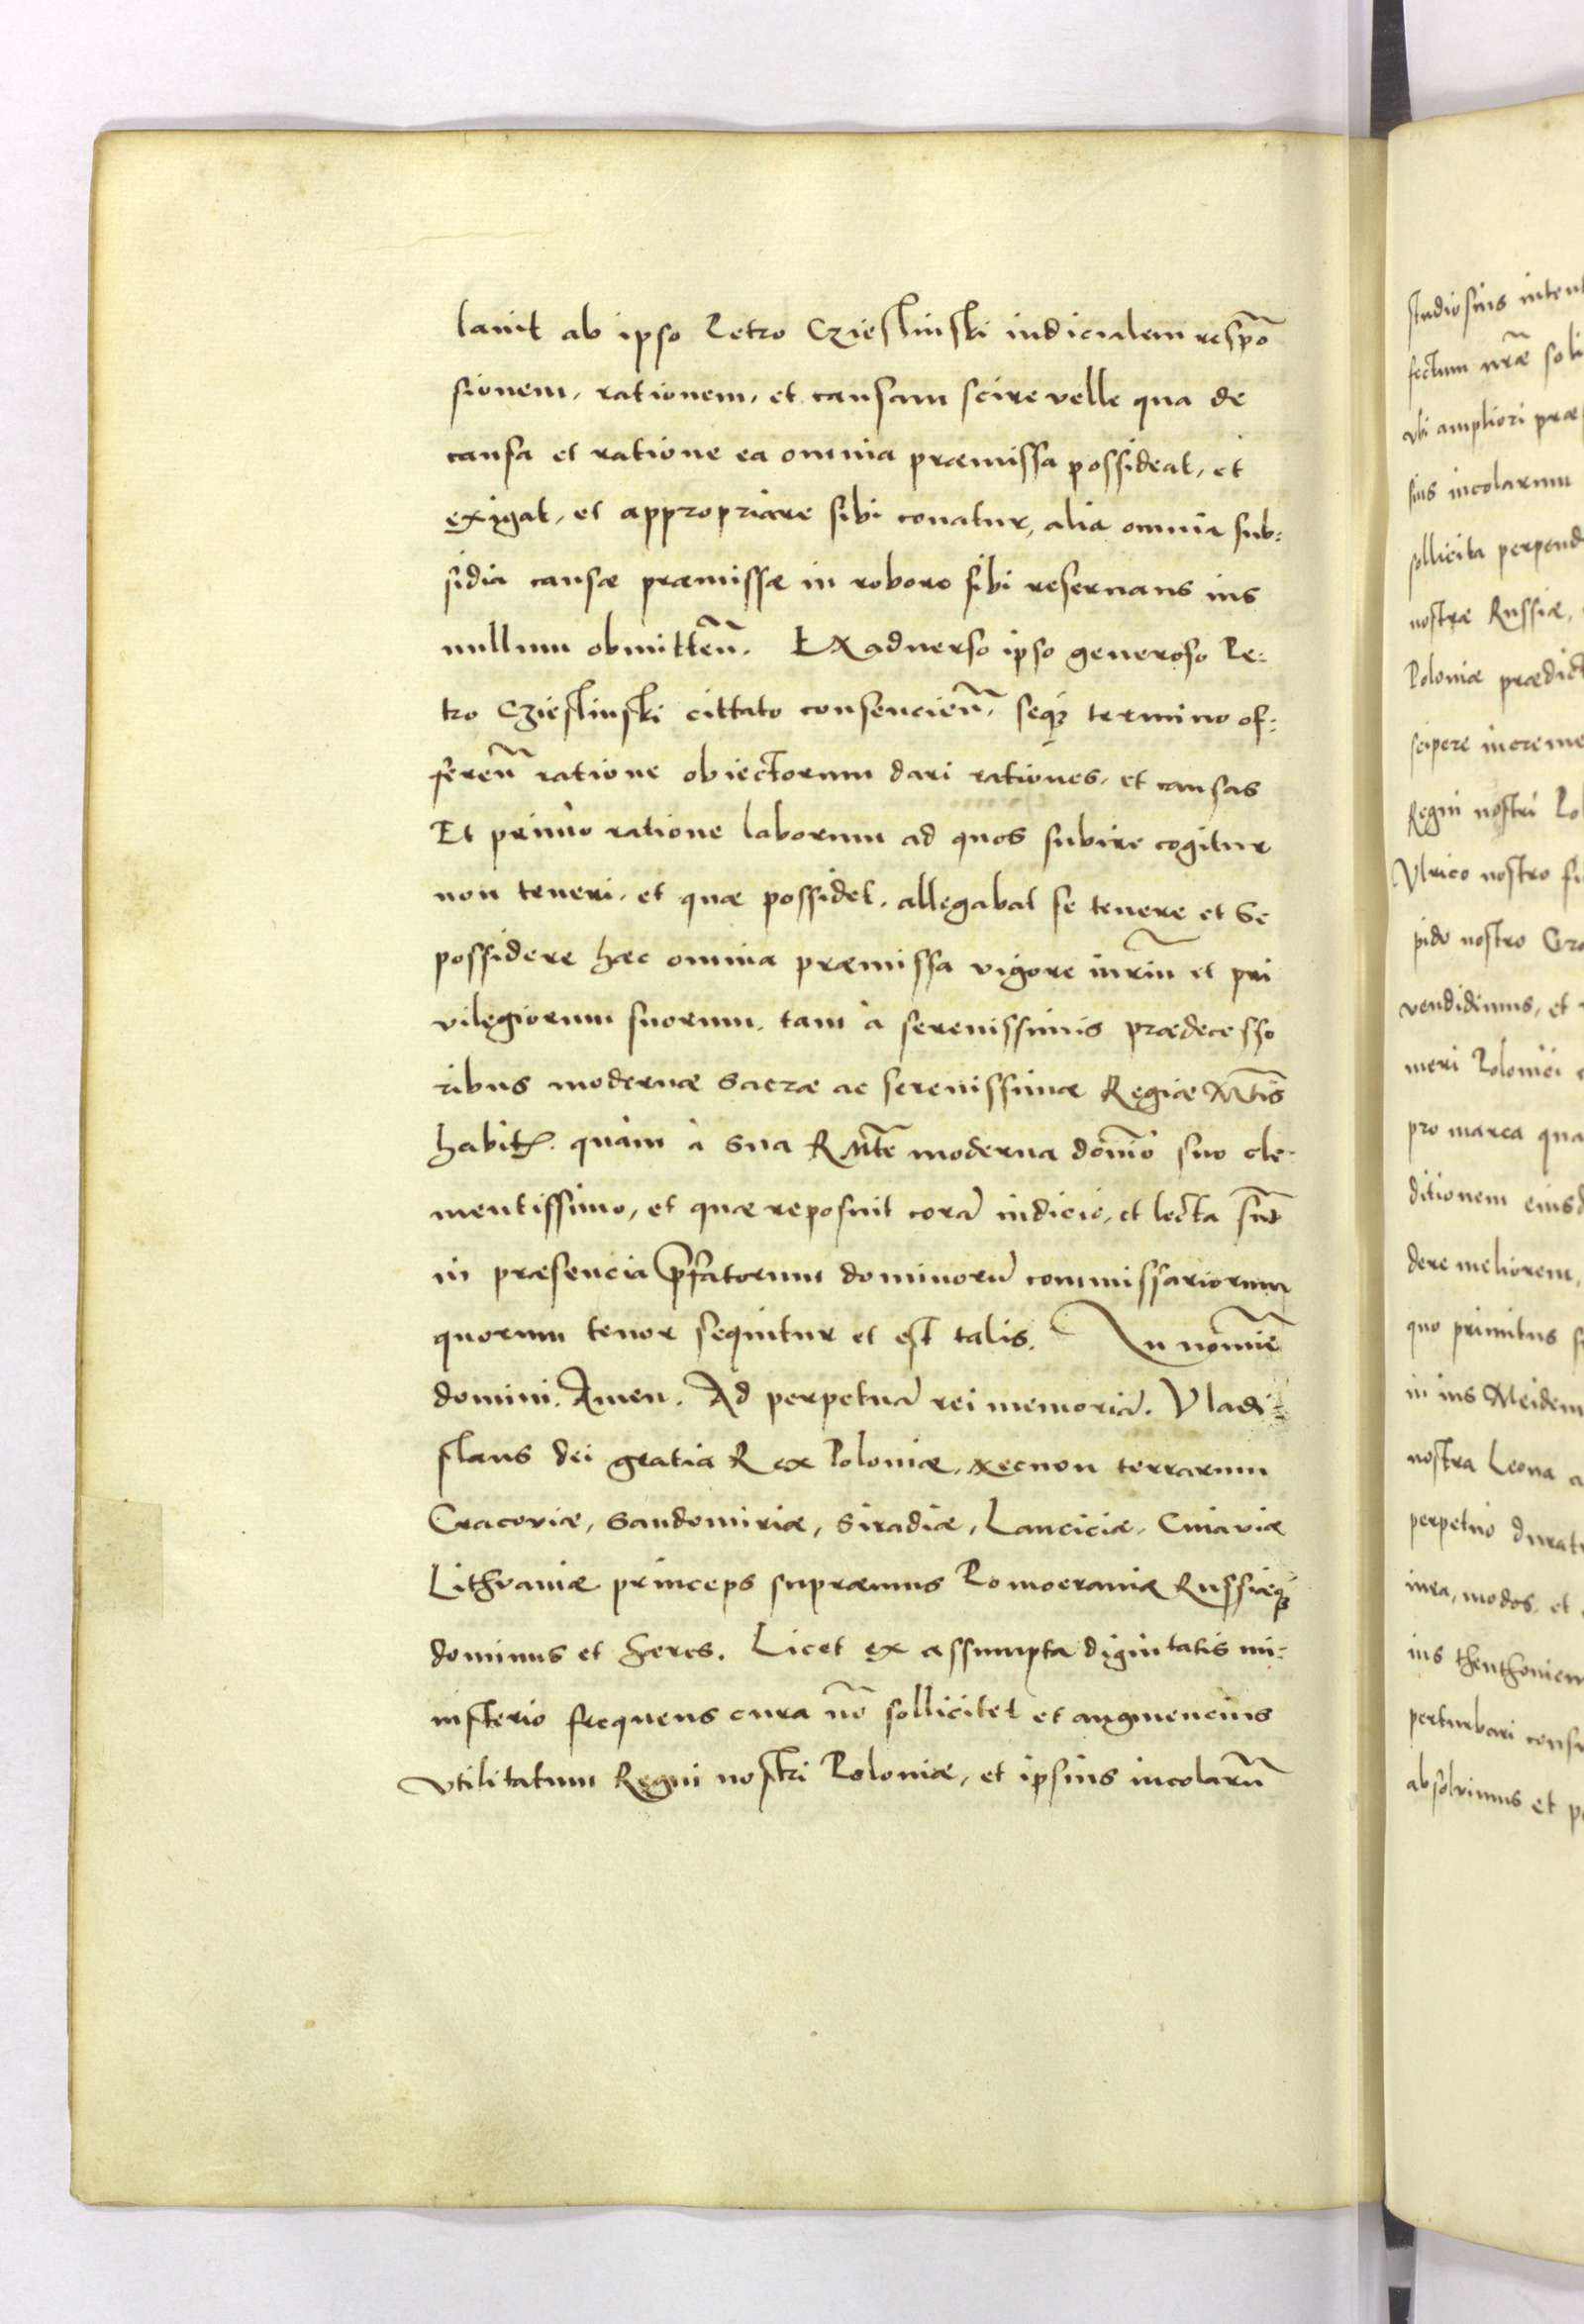 lauit ab ipso Petro Czieslinski iudicialem respõ
sionem, rationem, et causam scire velle qua de
causa et ratione ea omnia præmissa possideat, et
exigat, et appropriare sibi conatur, alia omnia sub:
sidia causæ præmissæ in robore sibi reseruans ius
nullum obmitteñ. Ex aduerso ipso generoso Pe:
tro Czieslinski cittato consencieñ, seqꝫ termino of:
fereñ ratione obiectorum dari rationes, et causas
Et primo ratione laborum ad quos subire cogitur
non teneri, et quæ possidet, allegabat se tenere et se
possidere hæc omnia præmissa vigore iuriũ et pri
vilegiorum suorum, tam à serenissimis prædecesso
ribus modernæ sacræ ac serenissimæ Regiæ Mtis̃
habit, quàm à sua R Mte̅ moderna domĩo suo cle-
mentissimo, et quæ reposuit corã iudicio, et lecta sũt
in præsencia p̃fatorum dominorũ commissariorum
quorum tenor sequitur et est talis. In nomĩe
domini. Amen. Ad perpetuã rei memoriã. Vladi:
slaus dei gratia Rex Poloniæ, necnon terrarum
Cracoviæ, Sandomiriæ, Siradiæ, Lanciciæ, Cuiaviæ
Lithvaniæ princeps supræmus Pomoeraniæ Russiæqꝫ
dominus et hæres. Licet ex assumpta dignitatis mi:
nisterio frequens cura nõ sollicitet et augmencius
vtilitatum Regni nostri Poloniæ, et ipsius incolarũ
studiosius intent
fectum nr̃æ soli
vbi ampliori præ
sius incolarum
sollicita perpend
nostræ Russiæ,
Poloniæ prædict
scipere increme
Regni nostri Pol
Vlrico nostro fi
pido nostro Gro
vendidimus, et
meri Polonici
pro marca qua
ditionem eiusd
dere meliorem,
quo primitus
in ius Meidem
nostra Leona a
perpetuo durat
iura, modos, et
ius thenthonicum
perturbari consu
absolvimus et p